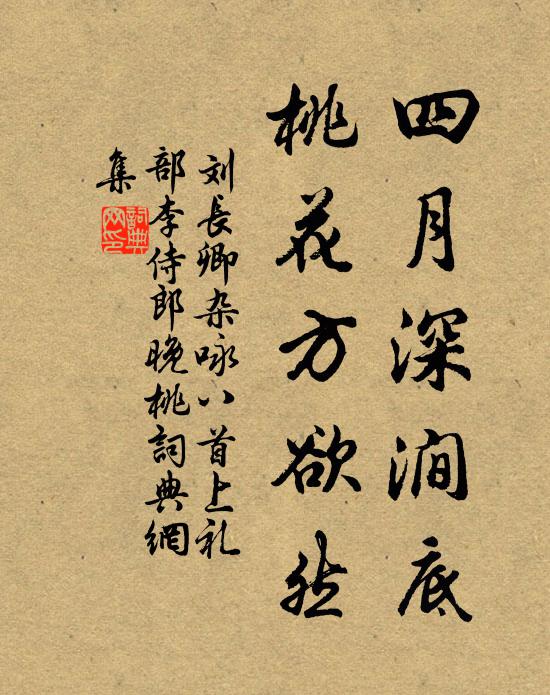 四月深涧底
桃花方欲然
刘长卿杂咏八首上礼
部李侍郎晚桃詞典網
集
詞典
网印